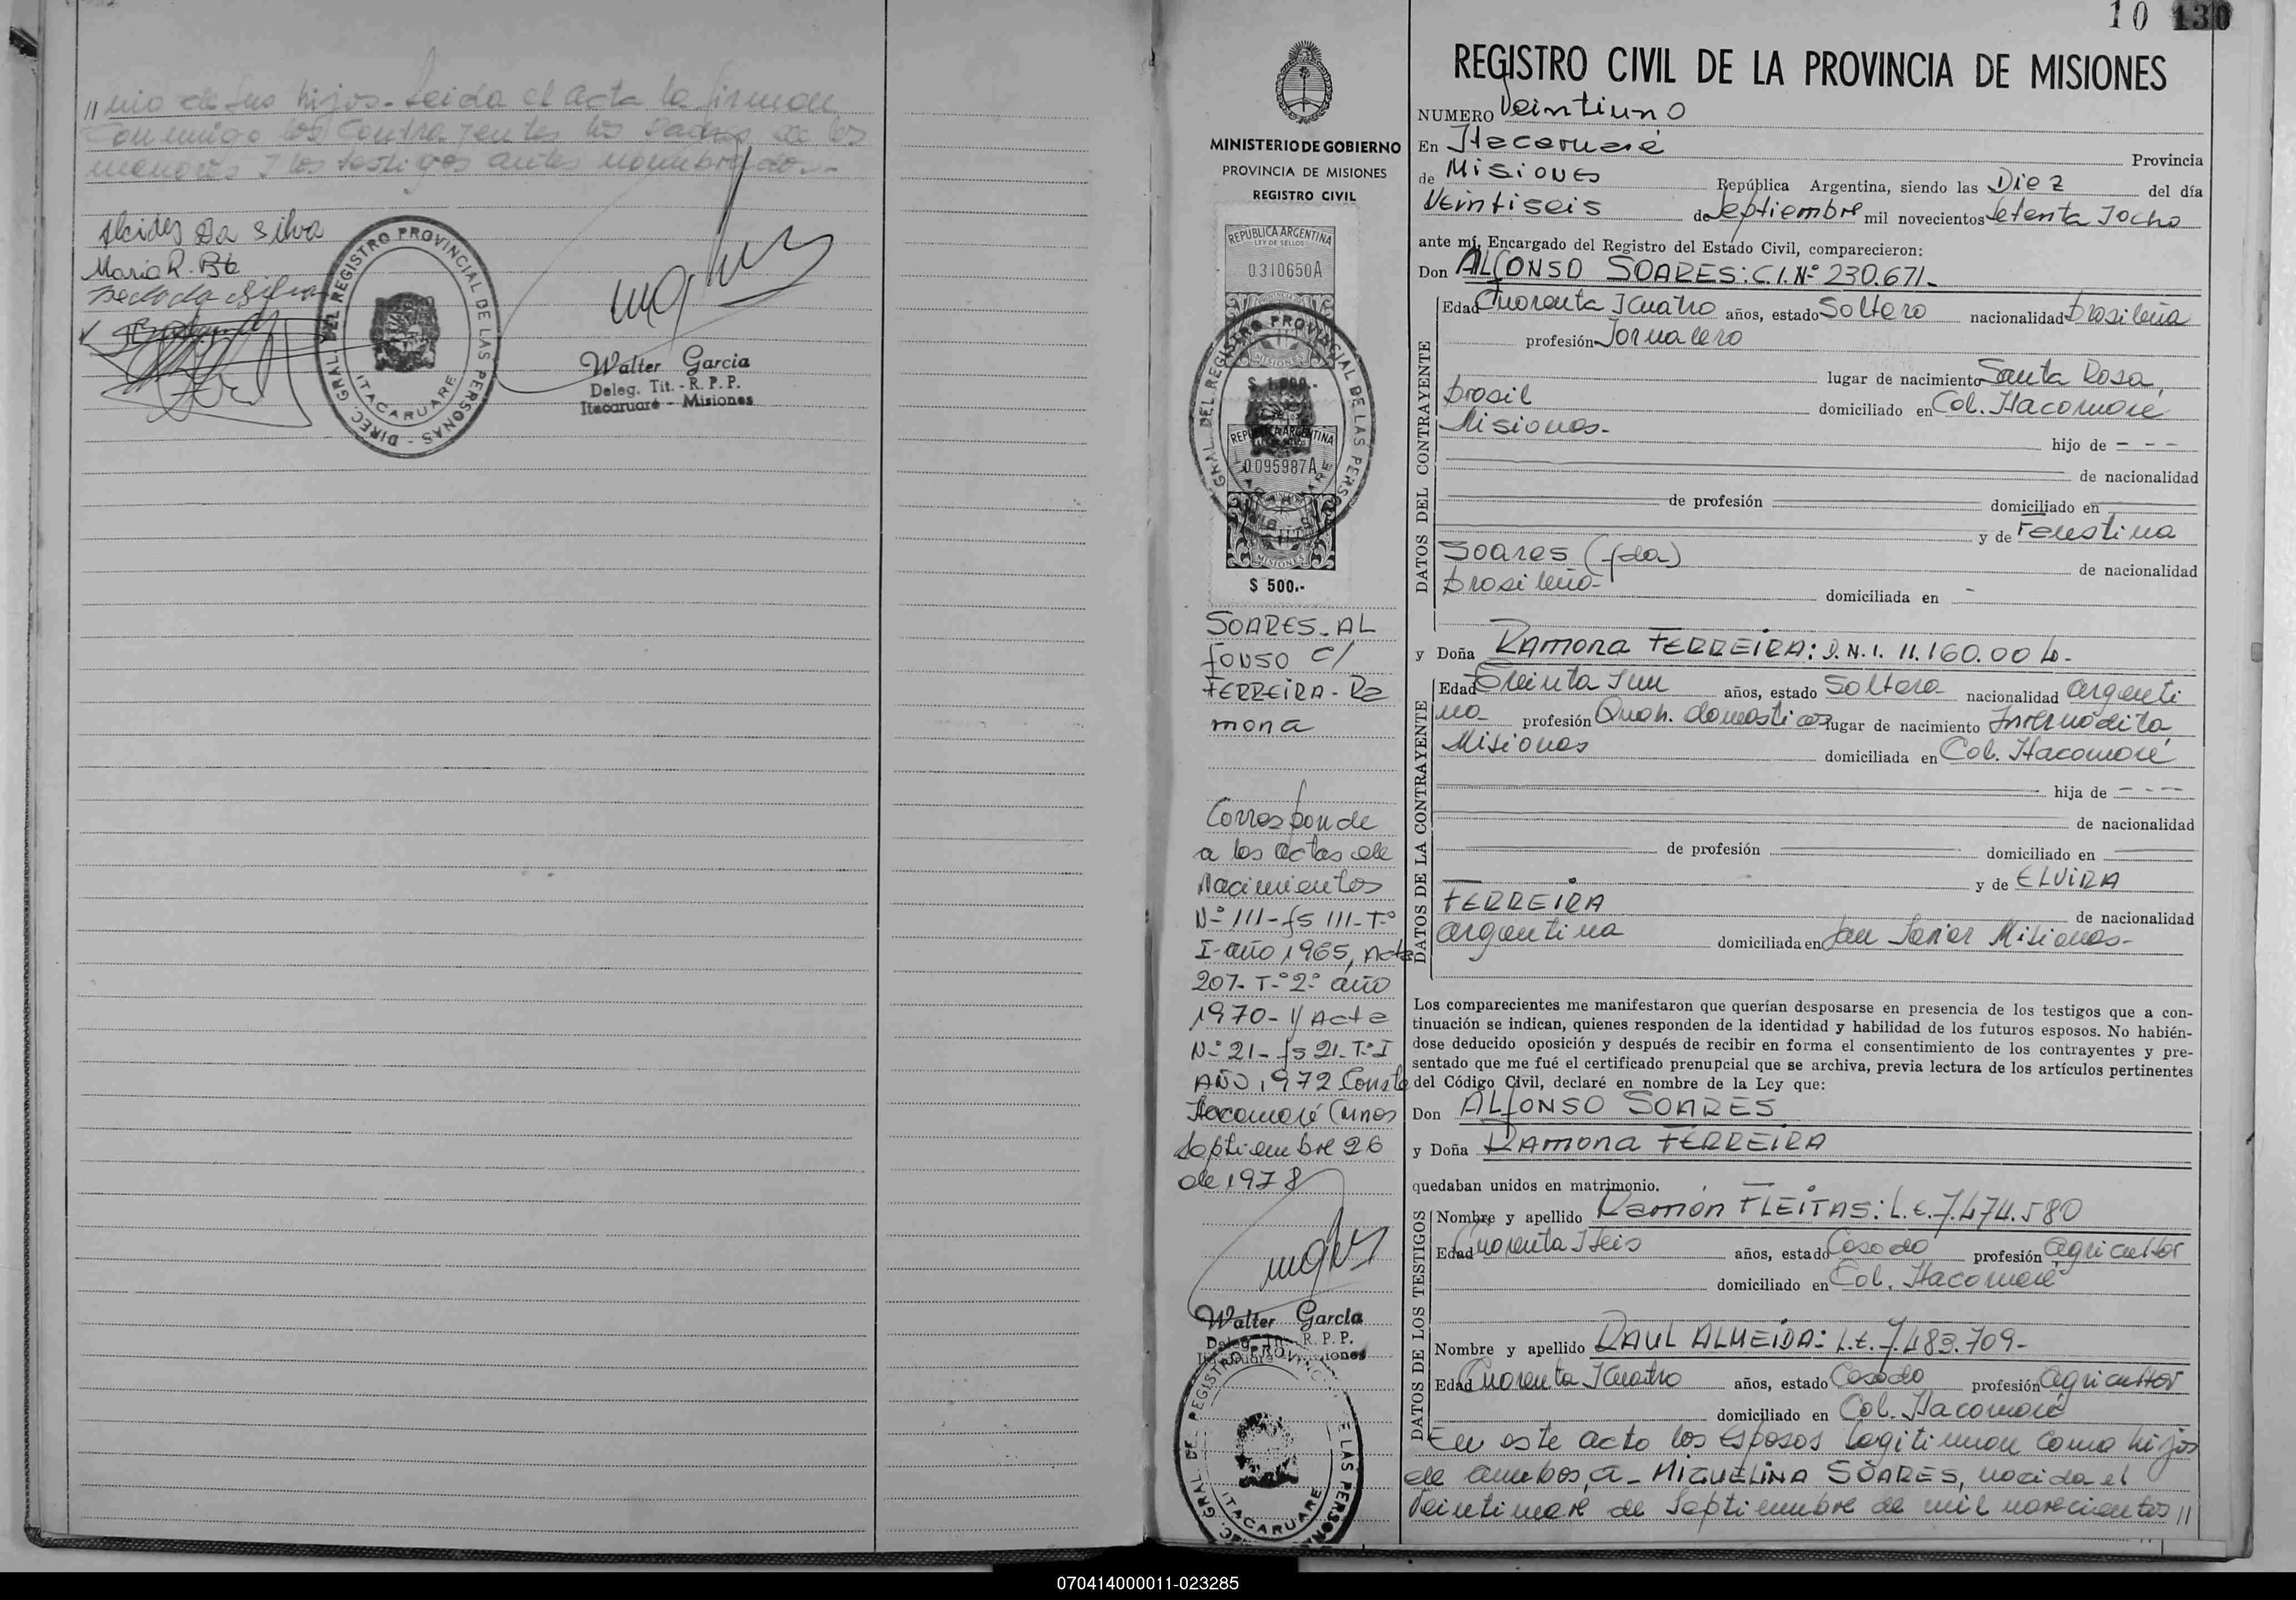 // nio de sus hijos - Leida el acta la firman
conmigo los contrayentes los padres de los
menores y los testigos antes nombrados.-
Alcides Da Silva
Maria R.
DIREC. GRAL. DEL REGISTRO PROVINCIAL DE LAS PERSONAS -
ITACARUARE
Walter Garcia
Deleg. Tit. - R. P. P.
Itacaruaré - Misiones
MINISTERIO DE GOBIERNO
PROVINCIA DE MISIONES
REGISTRO CIVIL
REPUBLICA ARGENTINA
LEY DE SELLOS
0310650A
MISIONES
$ 1.000.-
REPUBLICA ARGENTINA
0095987A
MISIONES
$ 500.-
SOARES - AL
fonso c/
FERREIRA - Ra
mona
Corresponde
a las actas de
Nacimientos
Nº 111 - fs 111 - Tº
I - año 1965, Acta
207 - Tº 2º año
1970 - y Acta
Nº 21 - fs 21 - Tº I
AÑO 1972 Conste
Itacaruaré (Mnes
Septiembre 26
de 1978
Walter Garcia
Deleg. Tit. R. P. P.
Itacaruaré - Misiones
ITACARUARE
10 130
REGISTRO CIVIL DE LA PROVINCIA DE MISIONES
NUMERO Veintiuno
En Itacaruaré Provincia
de Misiones República Argentina, siendo las Diez del día
Veintiseis de Septiembre mil novecientos setenta y ocho
ante mí, Encargado del Registro del Estado Civil, comparecieron:
Don ALFONSO SOARES: C.I. Nº 230.671.-
DATOS DEL CONTRAYENTE
Edad Cuarenta y cuatro años, estado Soltero nacionalidad brasileña
profesión Jornalero
lugar de nacimiento Santa Rosa,
brasil domiciliado en Col. Itacaruaré
Misiones.- hijo de - - -
de nacionalidad
de profesión domiciliado en
y de
Soares (fda) de nacionalidad
brasileña domiciliada en -
y Doña RAMONA FERREIRA: D.N.I. 11.160.004.-
DATOS DE LA CONTRAYENTE
Edad Treinta y un años, estado Soltera nacionalidad argenti
na profesión Queh. domesticos lugar de nacimiento
Misiones domiciliada en Col. Itacaruaré
hija de - - -
de nacionalidad
de profesión domiciliado en
y de ELVIRA
FERREIRA de nacionalidad
argentina domiciliada en San Javier Misiones-
Los comparecientes me manifestaron que querían desposarse en presencia de los testigos que a con-
tinuación se indican, quienes responden de la identidad y habilidad de los futuros esposos. No habién-
dose deducido oposición y después de recibir en forma el consentimiento de los contrayentes y pre-
sentado que me fué el certificado prenupcial que se archiva, previa lectura de los artículos pertinentes
del Código Civil, declaré en nombre de la Ley que:
Don ALFONSO SOARES
y Doña RAMONA FERREIRA
quedaban unidos en matrimonio.
DATOS DE LOS TESTIGOS
Nombre y apellido Ramón FLEITAS: L.E. 7.474.580
Edad Cuarenta y seis años, estado Casado profesión agricultor
domiciliado en Col. Itacaruaré
Nombre y apellido RAUL ALMEIDA: L.E. 7.483.709-
Edad Cuarenta y cuatro años, estado Casado profesión agricultor
domiciliado en Col. Itacaruaré
En este acto los esposos legitiman como hijos
de ambos, a - MIGUELINA SOARES, nacida el
Veintinueve de Septiembre de mil novecientos //
070414000011-023285